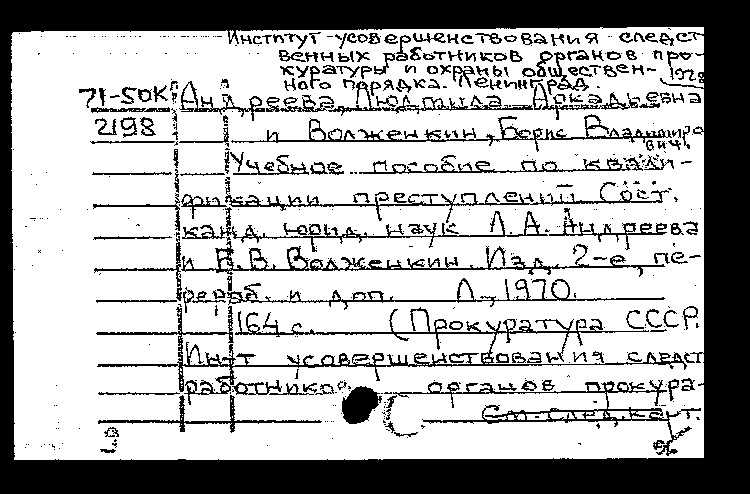 Институт усовершенствования следст
венных работников органов про-
куратуры и охраны обществен-
ного порядка. Ленинград.
71-50К Андреева, Людмила Аркадьевна
2198 и Волженкин, Борис Владимиро
вич.
Учебное пособие по квали-
фикации преступлений Сост.
канд. юрид. наук Л. А. Андреева
и Б. В. Волженкин. Изд. 2-е, пе-
рераб. и доп. Л., 1970.
164 с. (Прокуратура СССР.
Ин-т усовершенствования следст
работников органов прокура-
См. след. карт.